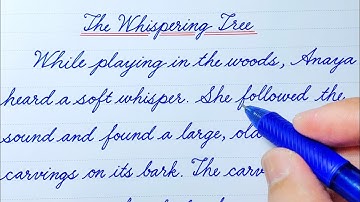 The Whispering Tree
While playing in the woods, Anaya
heard a soft whisper. She followed the
sound and found a large, old
carvings on its bark. The carv